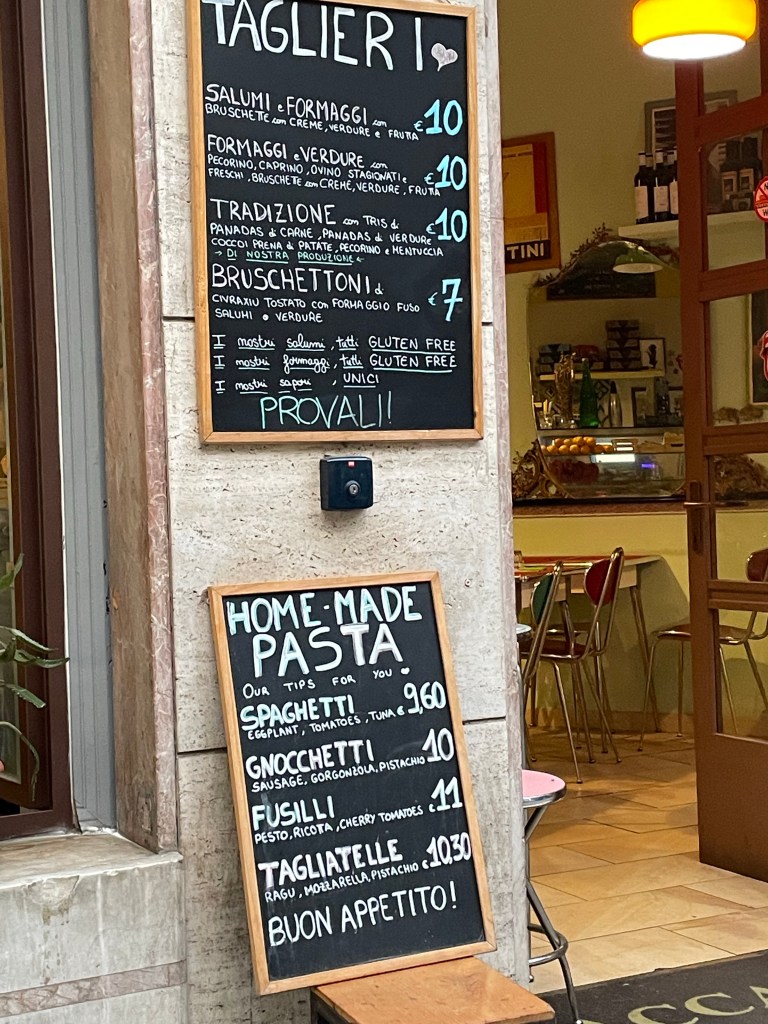 TAGLIERI
SALUMI e FORMAGGI con
BRUSCHETTE con CREME, VERDURE e FRUTTA €10
FORMAGGI e VERDURE con
PECORINO, CAPRINO, OVINO STAGIONATI e
FRESCHI, BRUSCHETTE con CREME, VERDURE, FRUTTA €10
TRADIZIONE con TRIS di
PANADAS di CARNE, PANADAS di VERDURE €10
COCCOI PRENA di PATATE, PECORINO e MENTUCCIA
→ DI NOSTRA PRODUZIONE ←
BRUSCHETTONI di
CIVRAXIU TOSTATO con FORMAGGIO FUSO €7
SALUMI o VERDURE
I nostri salumi, tutti GLUTEN FREE
I nostri formaggi, tutti GLUTEN FREE
I nostri sapori, UNICI
PROVALI!
HOME-MADE
PASTA
OUR TIPS FOR YOU
SPAGHETTI €9,60
EGGPLANT, TOMATOES, TUNA
GNOCCHETTI 10
SAUSAGE, GORGONZOLA, PISTACHIO
FUSILLI €11
PESTO, RICOTTA, CHERRY TOMATOES
TAGLIATELLE €10,30
RAGU, MOZZARELLA, PISTACHIO
BUON APPETITO!
TINI
ACCA